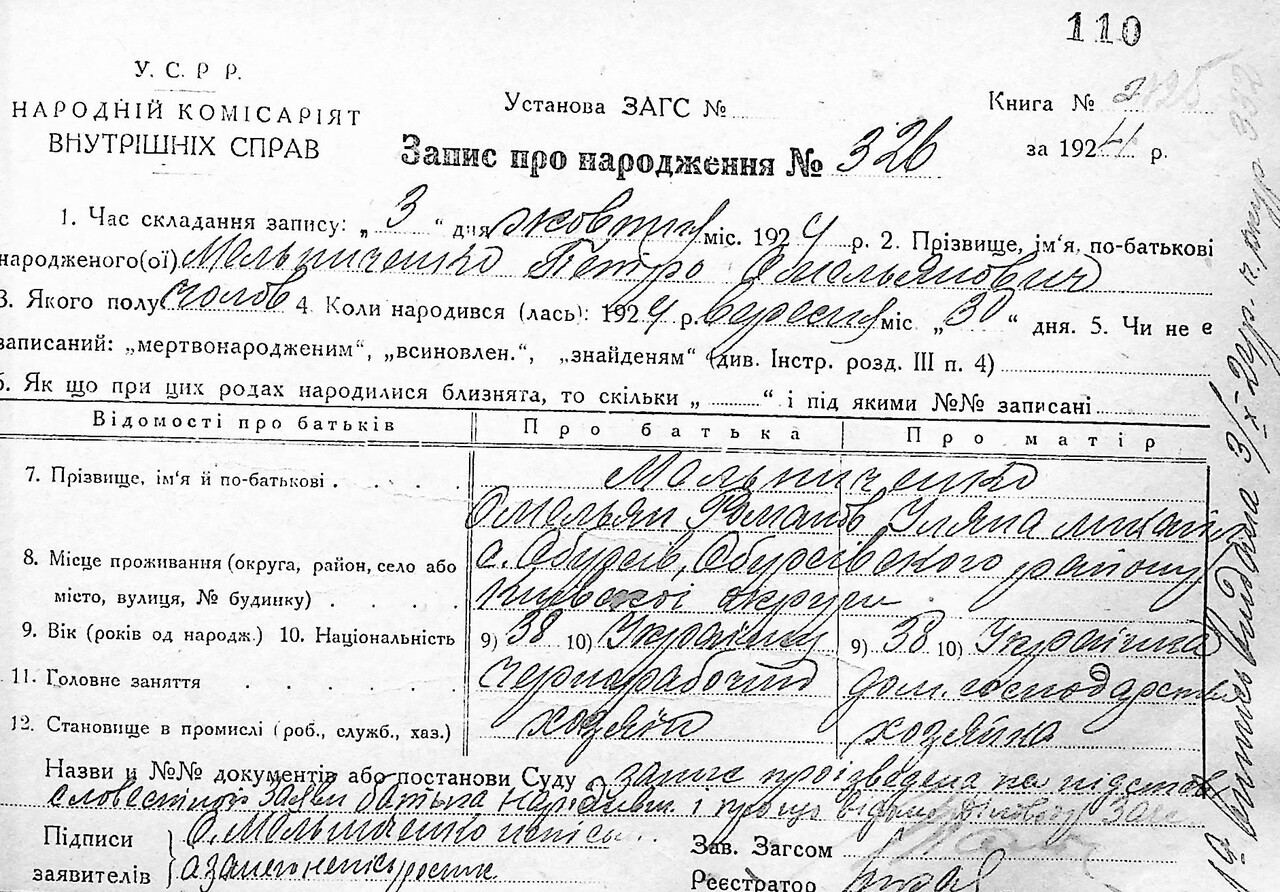 110
У. С. Р Р.
НАРОДНІЙ КОМІСАРІЯТ
ВНУТРІШНІХ СПРАВ
Установа ЗАГС №
Книга №
за 1924 р.
Запис про народження № 326
1. Час складання запису: „ 3 “ дня жовтня міс. 1924 р. 2. Прізвище, ім‘я, по-батькові
народженого(ої) Мельниченко Петро Омельянович
3. Якого полу чолов 4. Коли народився (лась): 1924 р. вересня міс „ 30 “ дня. 5. Чи не є
записаний: „мертвонародженим“, „всиновлен.“, „знайденям“ (див. Інстр. розд. III п. 4)
6. Як що при цих родах народилися близнята, то скільки „ “ і під якими №№ записані
Відомості про батьків Про батька Про матір
7. Прізвище, ім‘я й по-батькові Мельниченко
Омельян Романов Уляна
8. Місце проживання (округа, район, село або с. Обухів, Обухівского району
місто, вулиця, № будинку) Київскої округи
9. Вік (років од народж.) 10. Національність 9) 38 10) 9) 38 10)
11. Головне заняття чернорабочий дом. господарств
12. Становище в промислі (роб., служб., хаз.) хозяїн хозяйка
Назви и №№ документів або постанови Суду запис произведена на підстав
словесної заяви батька
Підписи О. Мельниченко
заявителів
Зав. Загсом
Реєстратор